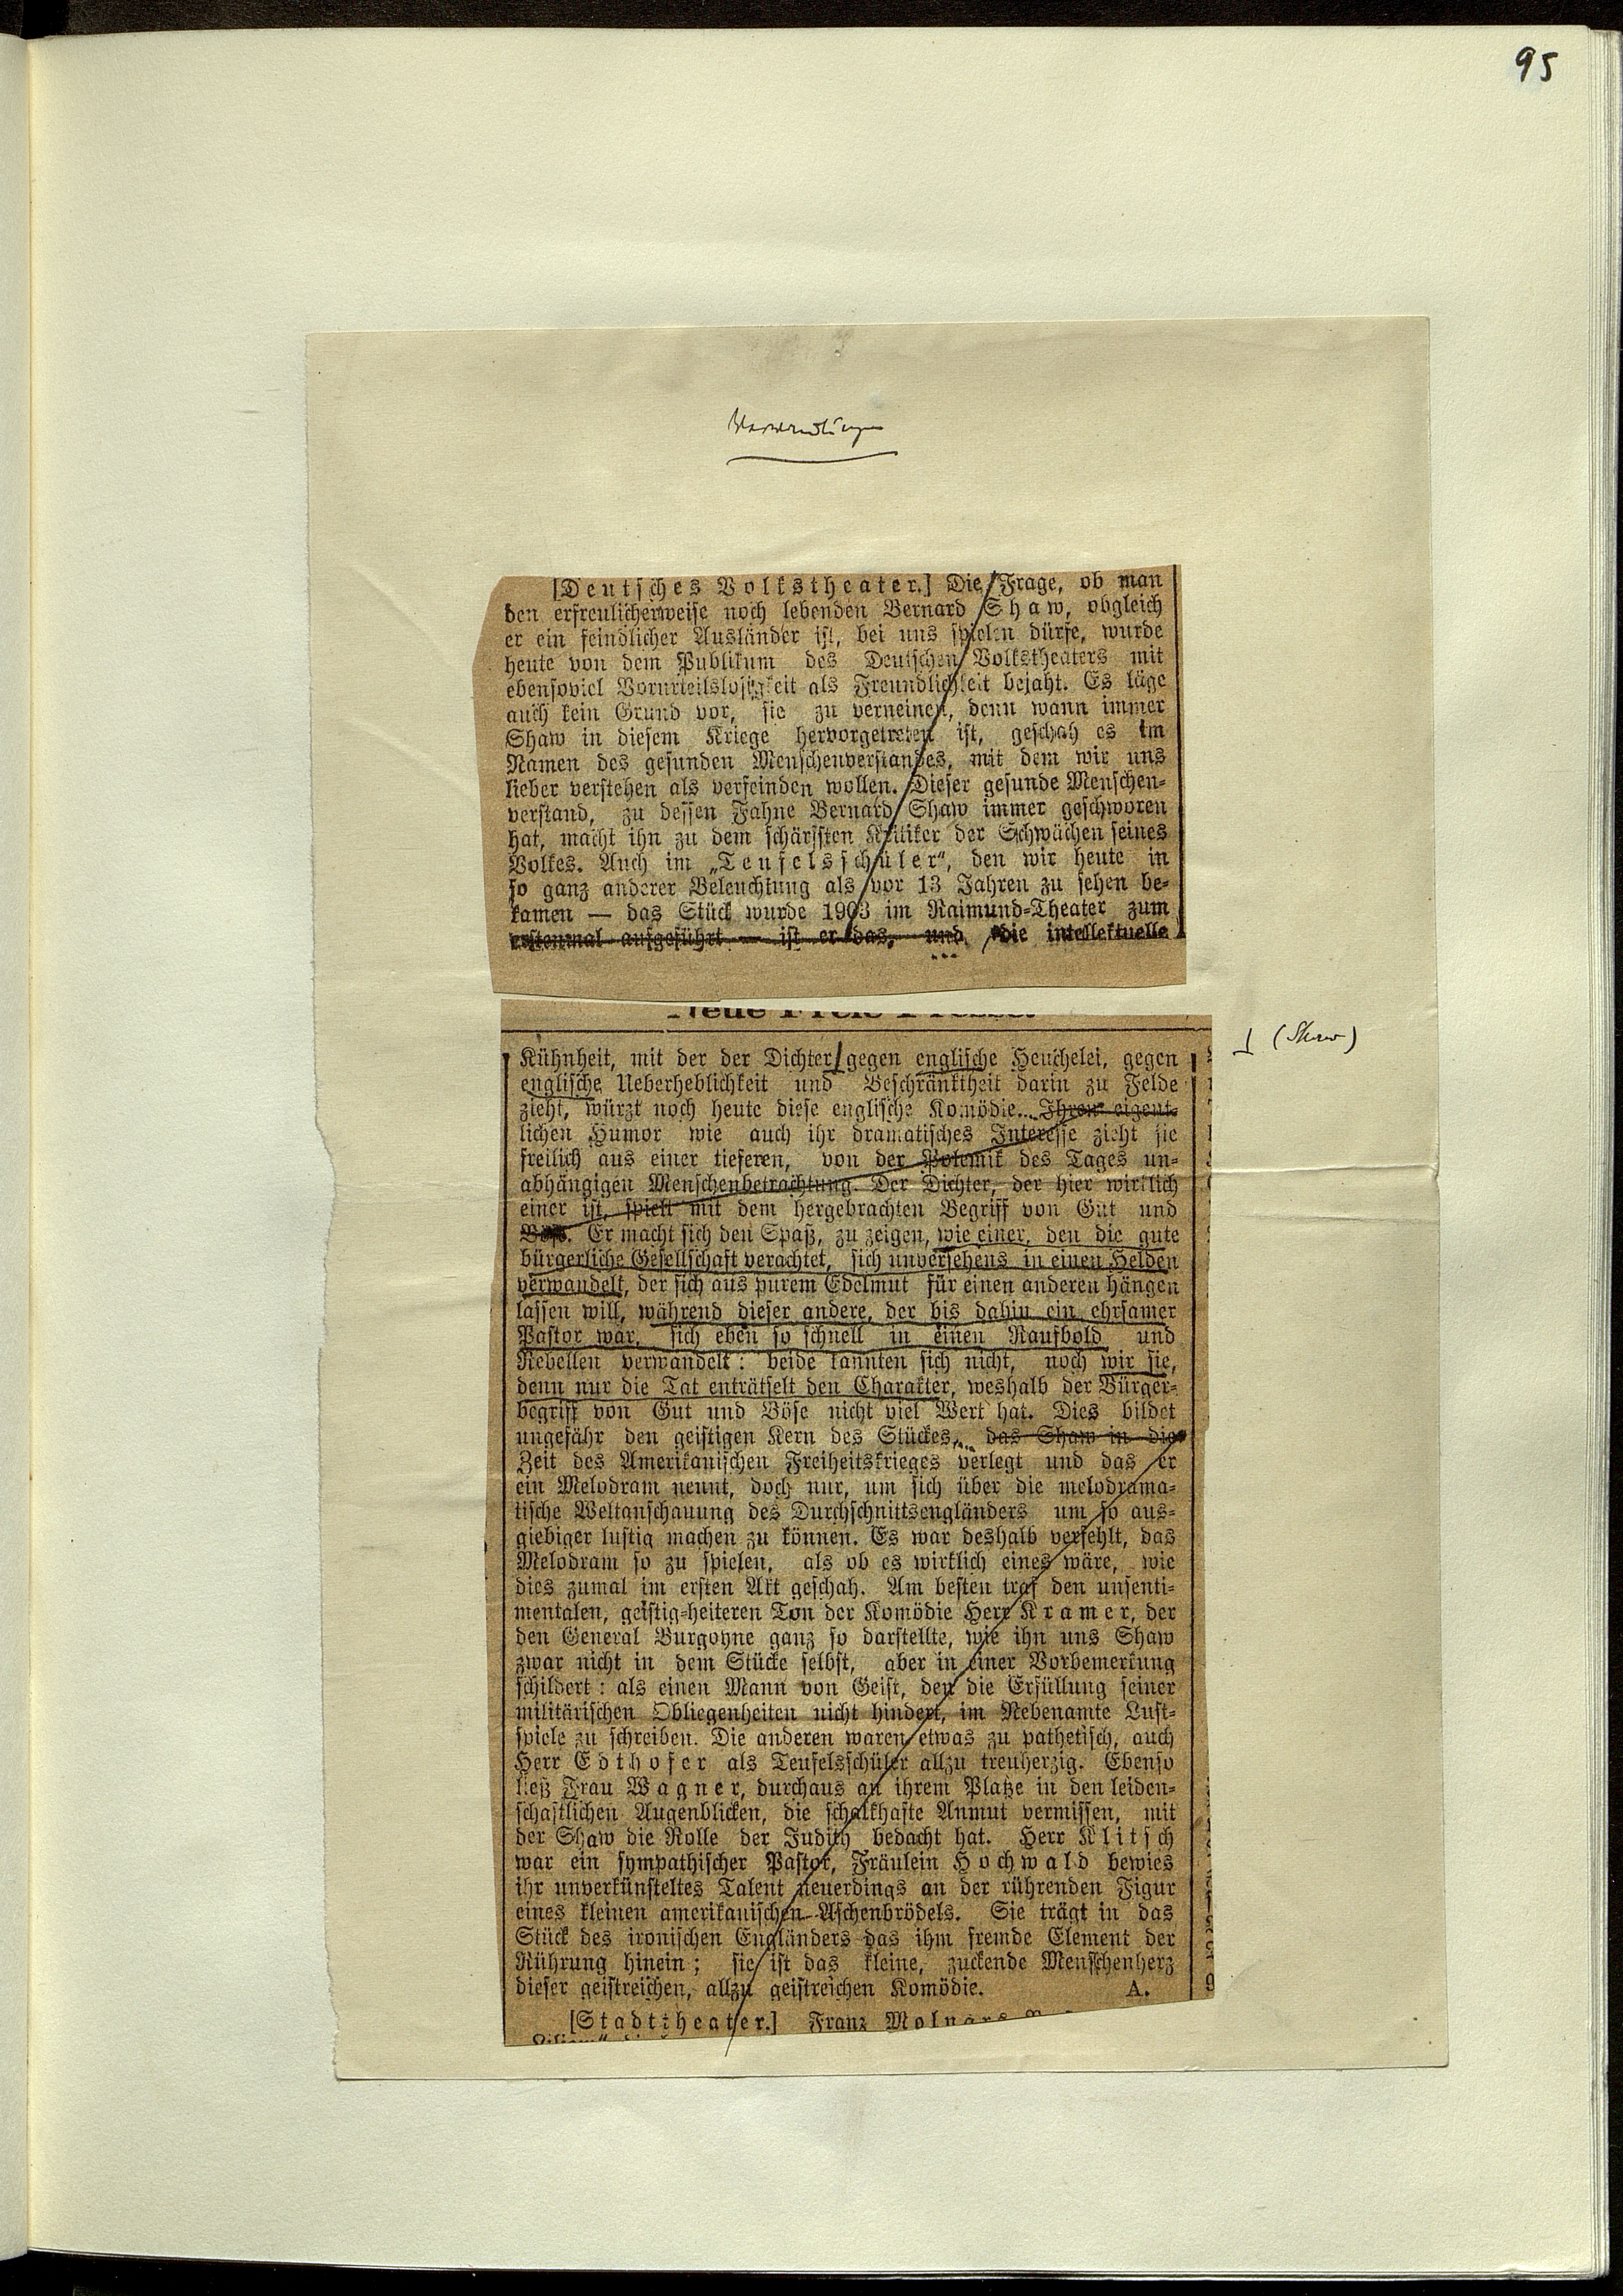 95
Verwandlungen
[Deutsches Volkstheater.] Die Frage, ob man
den erfreulicherweise noch lebenden Bernard Shaw, obgleich
er ein feindlicher Ausländer ist, bei uns spielen dürfe, wurde
heute von dem Publikum des Deutschen Volkstheaters mit
ebensoviel Vorurteilslosigkeit als Freundlichkeit bejaht. Es läge
auch kein Grund vor, sie zu verneinen, denn wann immer
Shaw in diesem Kriege hervorgetreten ist, geschah es im
Namen des gesunden Menschenverstandes, mit dem wir uns
lieber verstehen als verfeinden wollen. Dieser gesunde Menschen-
verstand, zu dessen Fahne Bernard Shaw immer geschworen
hat, macht ihn zu dem schärfsten Kritiker der Schwächen seines
Volkes. Auch im „Teufelsschüler“, den wir heute in
so ganz anderer Beleuchtung als vor 13 Jahren zu sehen be-
kamen — das Stück wurde 1903 im Raimund-Theater zum
erstenmal aufgeführt — ist er das, und die intellektuelle
Neue Freie Presse.
Kühnheit, mit der der Dichter gegen englische Heuchelei, gegen
⊥ (Shaw)
englische Ueberheblichkeit und Beschränktheit darin zu Felde
zieht, würzt noch heute diese englische Komödie... Ihren eigent-
lichen Humor wie auch ihr dramatisches Interesse zieht sie
freilich aus einer tieferen, von der Polemik des Tages un-
abhängigen Menschenbetrachtung. Der Dichter, der hier wirklich
einer ist, spielt mit dem hergebrachten Begriff von Gut und
Böse. Er macht sich den Spaß, zu zeigen, wie einer, den die gute
bürgerliche Gesellschaft verachtet, sich unversehens in einen Helden
verwandelt, der sich aus purem Edelmut für einen anderen hängen
lassen will, während dieser andere, der bis dahin ein ehrsamer
Pastor war, sich eben so schnell in einen Raufbold und
Rebellen verwandelt: beide kannten sich nicht, noch wir sie,
denn nur die Tat enträtselt den Charakter, weshalb der Bürger-
begriff von Gut und Böse nicht viel Wert hat. Dies bildet
ungefähr den geistigen Kern des Stückes, das Shaw in die
Zeit des Amerikanischen Freiheitskrieges verlegt und das er
ein Melodram nennt, doch nur, um sich über die melodrama-
tische Weltanschauung des Durchschnittsengländers um so aus-
giebiger lustig machen zu können. Es war deshalb verfehlt, das
Melodram so zu spielen, als ob es wirklich eines wäre, wie
dies zumal im ersten Akt geschah. Am besten traf den unsenti-
mentalen, geistig-heiteren Ton der Komödie Herr Kramer, der
den General Burgoyne ganz so darstellte, wie ihn uns Shaw
zwar nicht in dem Stücke selbst, aber in einer Vorbemerkung
schildert: als einen Mann von Geist, den die Erfüllung seiner
militärischen Obliegenheiten nicht hindert, im Nebenamte Lust-
spiele zu schreiben. Die anderen waren etwas zu pathetisch, auch
Herr Edthofer als Teufelsschüler allzu treuherzig. Ebenso
ließ Frau Wagner, durchaus an ihrem Platze in den leiden-
schaftlichen Augenblicken, die schalkhafte Anmut vermissen, mit
der Shaw die Rolle der Judith bedacht hat. Herr Klitsch
war ein sympathischer Pastor, Fräulein Hochwald bewies
ihr unverkünsteltes Talent neuerdings an der rührenden Figur
eines kleinen amerikanischen Aschenbrödels. Sie trägt in das
Stück des ironischen Engländers das ihm fremde Element der
Rührung hinein; sie ist das kleine, zuckende Menschenherz
dieser geistreichen, allzu geistreichen Komödie. A.
[Stadttheater.] Franz Molnars